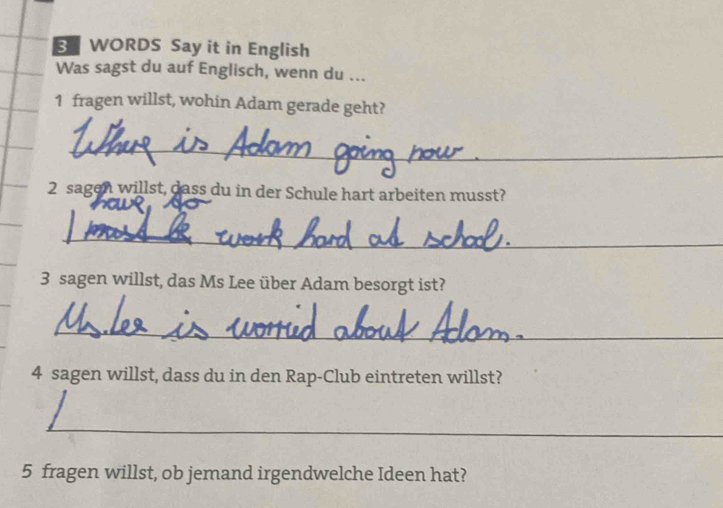 3 WORDS Say it in English
Was sagst du auf Englisch, wenn du ...
1 fragen willst, wohin Adam gerade geht?
Where is Adam going now.
2 sagen willst, dass du in der Schule hart arbeiten musst?
have to
I must be work hard at school.
3 sagen willst, das Ms Lee über Adam besorgt ist?
Ms. Lee is worried about Adam.
4 sagen willst, dass du in den Rap-Club eintreten willst?
I
5 fragen willst, ob jemand irgendwelche Ideen hat?